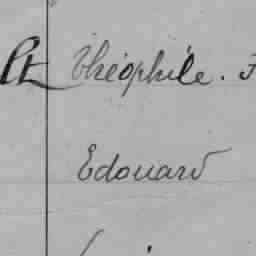 Théophile. F
Edouard